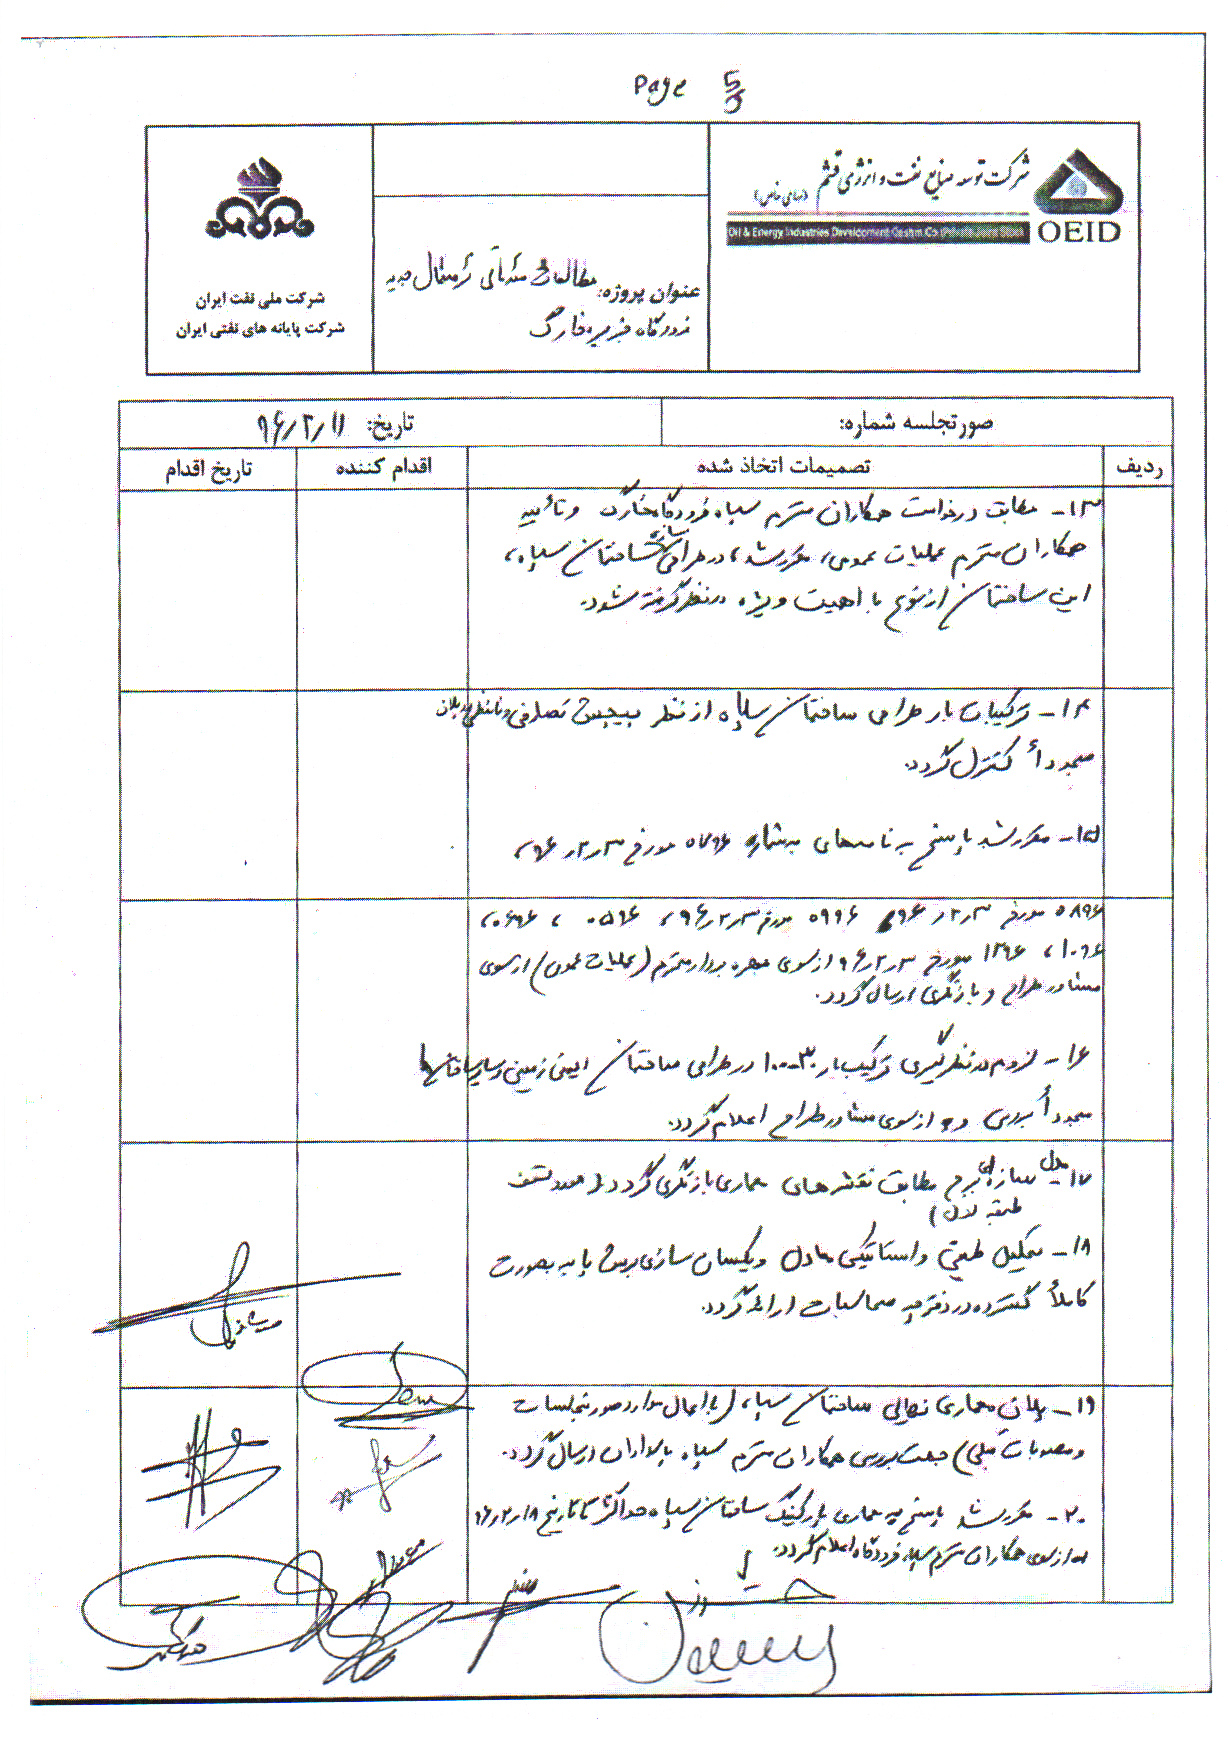 Page 5/5
شرکت توسعه صنایع نفت و انرژی قشم
(سهامی خاص)
OEID
Oil & Energy Industries Development Qeshm Co
عنوان پروژه: مطالعات مقدماتی ترمینال جدید
فرودگاه جزیره خارگ
شرکت ملی نفت ایران
شرکت پایانه های نفتی ایران
صورتجلسه شماره:
تاریخ: ۹۶/۲/۱۱
ردیف
تصمیمات اتخاذ شده
اقدام کننده
تاریخ اقدام
۱۳- مطابق درخواست همکاران محترم سپاه فرودگاه خارگ و تأیید
همکاران محترم عملیات عمومی، مقرر شد، در طراحی سازه ساختمان سپاه،
این ساختمان از نوع با اهمیت ویژه در نظر گرفته شود.
۱۴- ترکیبات بار طراحی ساختمان سپاه از نظر پیچش تصادفی و نامنظمی در پلان
مجدداً کنترل گردد.
۱۵- مقرر شد پاسخ به نامه‌های به شماره ۰۷۹۶ مورخ ۹۶/۲/۳،
۰۸۹۶ مورخ ۹۶/۲/۳، ۰۹۹۶ مورخ ۹۶/۲/۳، ۰۵۹۶، ۰۶۹۶،
۱۰۹۶، ۱۲۹۶ مورخ ۹۶/۲/۳ از سوی بهره بردار محترم (عملیات عمومی) از سوی
مشاور طراح و بازنگری ارسال گردد.
۱۶- لزوم در نظرگیری ترکیب بار ۳۰-۱۰۰ در طراحی ساختمان ایمنی زمینی و سایر ساختمانها
مجدداً بررسی و از سوی مشاور طراح اعلام گردد.
۱۷- مدل سازه‌ای برج مطابق نقشه‌های معماری بازنگری گردد (مورد سقف
طبقه اول)
۱۸- تحلیل طیفی و استاتیکی معادل و یکسان سازی برش پایه بصورت
کاملاً گسترده در دفترچه محاسبات ارائه گردد.
۱۹- پلان معماری نهایی ساختمان سپاه، (با اعمال موارد صورتجلسات
و مصوبات قبلی) جهت بررسی همکاران محترم سپاه پاسداران ارسال گردد.
۲۰- مقرر شد پاسخ به معماری پارکینگ ساختمان سپاه حداکثر تا تاریخ ۹۶/۲/۱۸
از سوی همکاران محترم سپاه فرودگاه اعلام گردد.